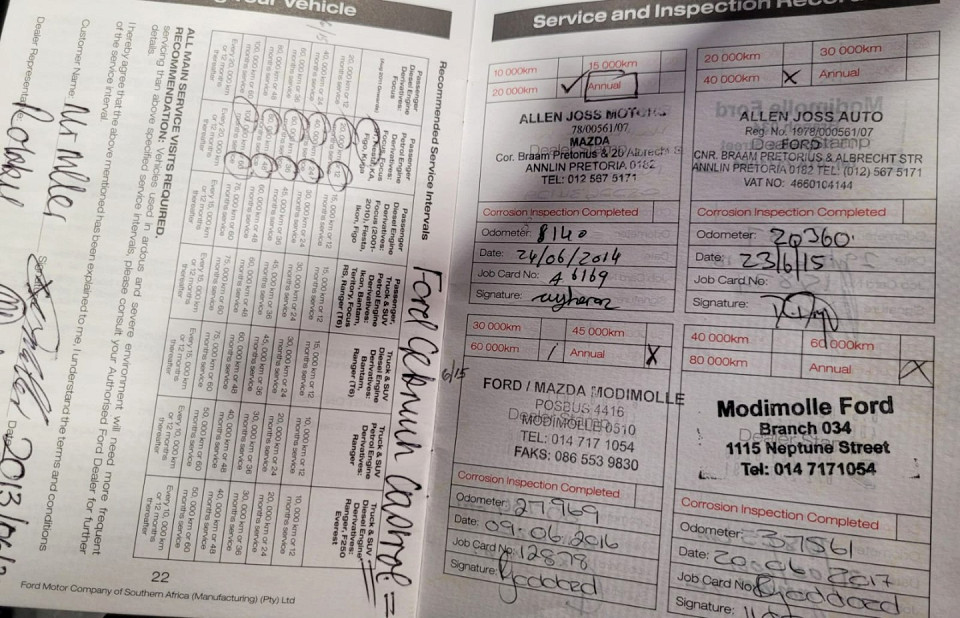 ng Your Vehicle
Recommended Service Intervals
Passenger
Diesel Engine
Derivatives:
Focus
20, 000 km or 12
months service
40, 000 km or 24
months service
60, 000 km or 36
months service
80, 000 km or 48
months service
100, 000 km or 60
months service
Every 20, 000 km
or 12 months
thereafter
Passenger
Petrol Engine
Derivatives:
Fiesta, KA,
Focus, Focus
Figo, Kuga
20, 000 km or 12
months service
Passenger
Diesel Engine
Derivatives:
Focus (2001-
2010), Fiesta,
Ikon, Figo
15, 000 km or 12
months service
30, 000 km or 24
months service
45, 000 km or 36
months service
60, 000 km or 48
months service
75, 000 km or 60
months service
Every 15, 000 km
or 12 months
thereafter
Passenger,
Truck & SUV
Petrol Engine
Derivatives:
Ikon, Bantam,
Territory, Focus
RS, Ranger (T6)
15, 000 km or 12
months service
30, 000 km or 24
months service
45, 000 km or 36
months service
60, 000 km or 48
months service
75, 000 km or 60
months service
Every 15, 000 km
or 12 months
thereafter
Truck & SUV
Diesel Engine
Derivatives:
Bantam,
Ranger (T6)
15, 000 km or 12
months service
30, 000 km or 24
months service
45, 000 km or 36
months service
60, 000 km or 48
months service
75, 000 km or 60
months service
Every 15, 000 km
or 12 months
thereafter
Truck & SUV
Petrol Engine
Derivatives:
Ranger
10, 000 km or 12
months service
20, 000 km or 24
months service
30, 000 km or 36
months service
40, 000 km or 48
months service
50, 000 km or 60
months service
Every 10, 000 km
or 12 months
thereafter
Truck & SUV
Diesel Engine
Derivatives:
Ranger, F250
Everest
10, 000 km or 12
months service
20, 000 km or 24
months service
30, 000 km or 36
months service
40, 000 km or 48
months service
50, 000 km or 60
months service
Every 10, 000 km
or 12 months
thereafter
ALL MAIN SERVICE VISITS REQUIRED.
RECOMMENDATION: Vehicles used in ardous and severe environment will need more frequent
servicing than above specified service intervals, please consult your Authorised Ford Dealer for further
details.
I hereby agree that the above mentioned has been explained to me, I understand the terms and conditions
of the service interval.
Customer Name: Mr Miller
Dealer Representative
Date: 2013/06/
22
Ford Motor Company of Southern Africa (Manufacturing) (Pty) Ltd
Service and Inspection Record
10 000km
15 000km
20 000km
Annual
ALLEN JOSS MOTORS
78/00561/07
MAZDA
Cor. Braam Pretorius & 20 Albrecht S
ANNLIN PRETORIA 0182
TEL: 012 567 5171
Corrosion Inspection Completed
Odometer: 8140
Date: 24/06/2014
Job Card No: A 6169
Signature:
20 000km
30 000km
40 000km
Annual
ALLEN JOSS AUTO
Reg. No. 1978/000561/07
FORD
CNR. BRAAM PRETORIUS & ALBRECHT STR
ANNLIN PRETORIA 0182 TEL: (012) 567 5171
VAT NO: 4660104144
Corrosion Inspection Completed
Odometer: 20360.
Date: 23/6/15
Job Card No:
Signature:
30 000km
45 000km
60 000km
Annual
6/15
FORD / MAZDA MODIMOLLE
POSBUS 4416
MODIMOLLE 0510
TEL: 014 717 1054
FAKS: 086 553 9830
Corrosion Inspection Completed
Odometer: 27969
Date: 09.06.2016
Job Card No: 12878
Signature:
40 000km
60 000km
80 000km
Annual
Modimolle Ford
Branch 034
1115 Neptune Street
Tel: 014 7171054
Corrosion Inspection Completed
Odometer: 37561
Date: 20.06.2017
Job Card No
Signature: